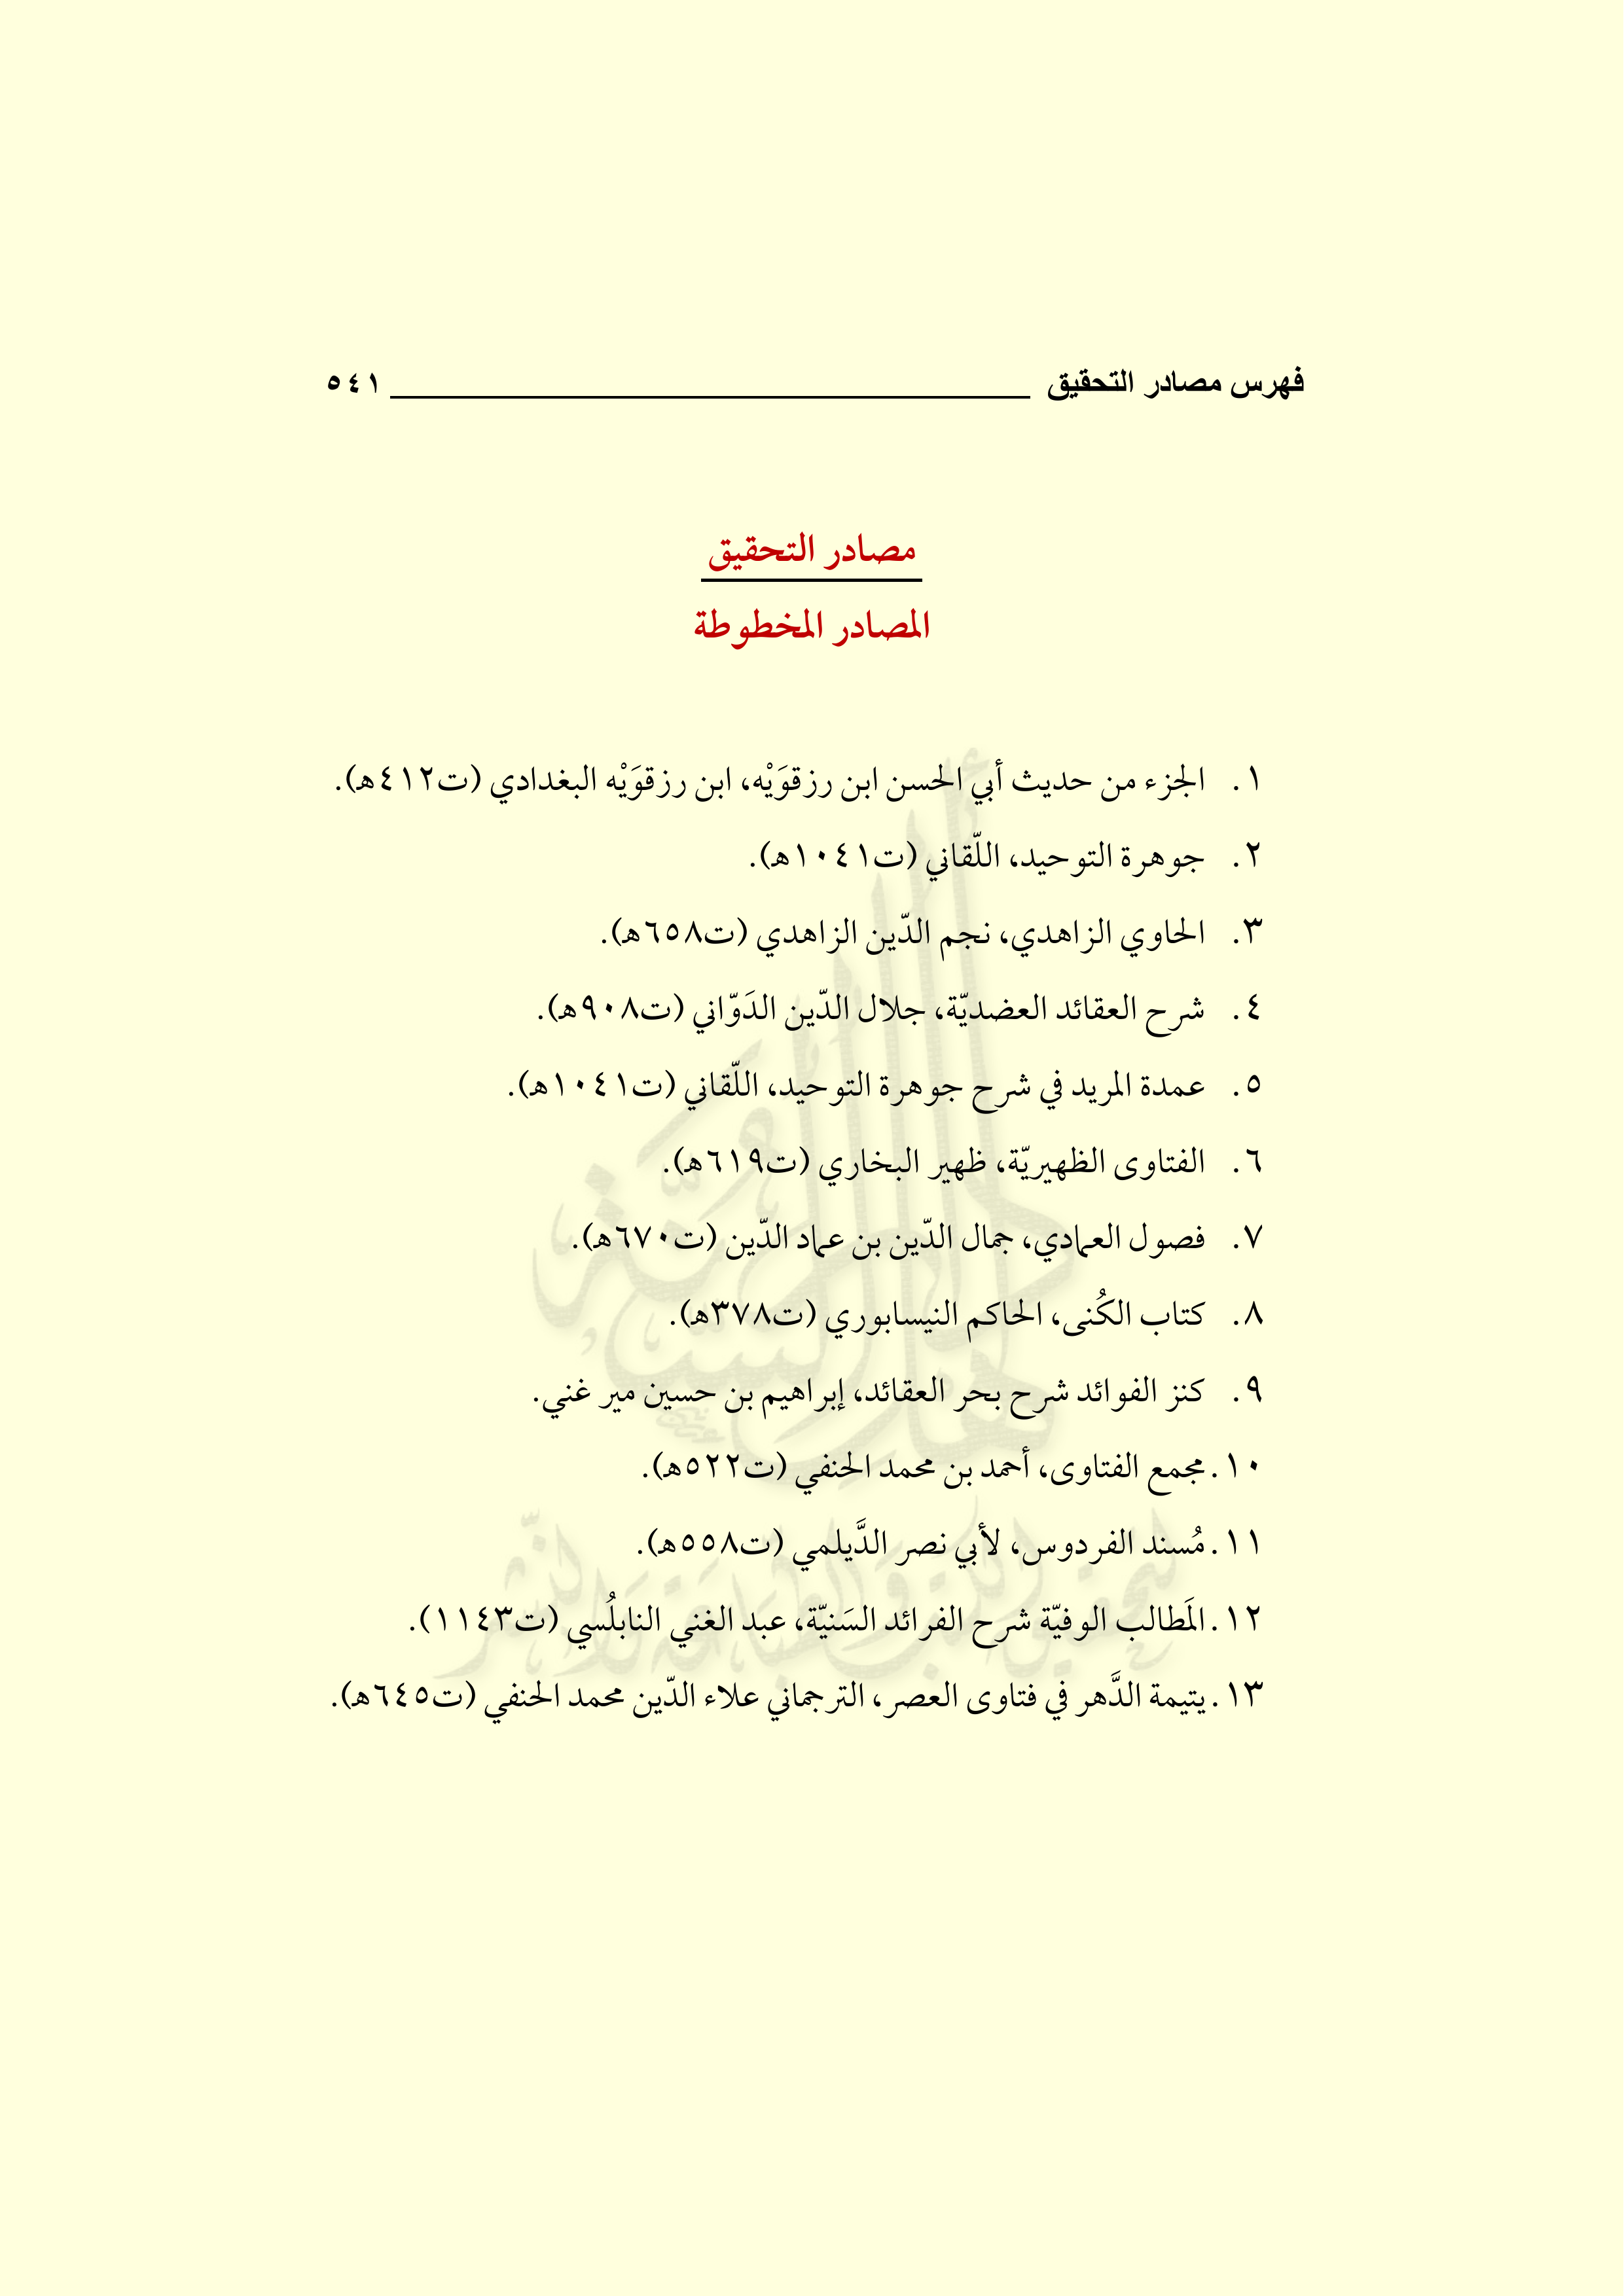 فهرس مصادر التحقيق ٥٤١
مصادر التحقيق
المصادر المخطوطة
١. الجزء من حديث أبي الحسن ابن رزقوَيْه، ابن رزقوَيْه البغدادي (ت٤١٢هـ).
٢. جوهرة التوحيد، اللّقاني (ت١٠٤١هـ).
٣. الحاوي الزاهدي، نجم الدّين الزاهدي (ت٦٥٨هـ).
٤. شرح العقائد العضديّة، جلال الدّين الدَوّاني (ت٩٠٨هـ).
٥. عمدة المريد في شرح جوهرة التوحيد، اللّقاني (ت١٠٤١هـ).
٦. الفتاوى الظهيريّة، ظهير البخاري (ت٦١٩هـ).
٧. فصول العمادي، جمال الدّين بن عماد الدّين (ت٦٧٠هـ).
٨. كتاب الكُنى، الحاكم النيسابوري (ت٣٧٨هـ).
٩. كنز الفوائد شرح بحر العقائد، إبراهيم بن حسين مير غني.
١٠. مجمع الفتاوى، أحمد بن محمد الحنفي (ت٥٢٢هـ).
١١. مُسند الفردوس، لأبي نصر الدَّيلمي (ت٥٥٨هـ).
١٢. المَطالب الوفيّة شرح الفرائد السَنيّة، عبد الغني النابلُسي (ت١١٤٣).
١٣. يتيمة الدَّهر في فتاوى العصر، الترجماني علاء الدّين محمد الحنفي (ت٦٤٥هـ).